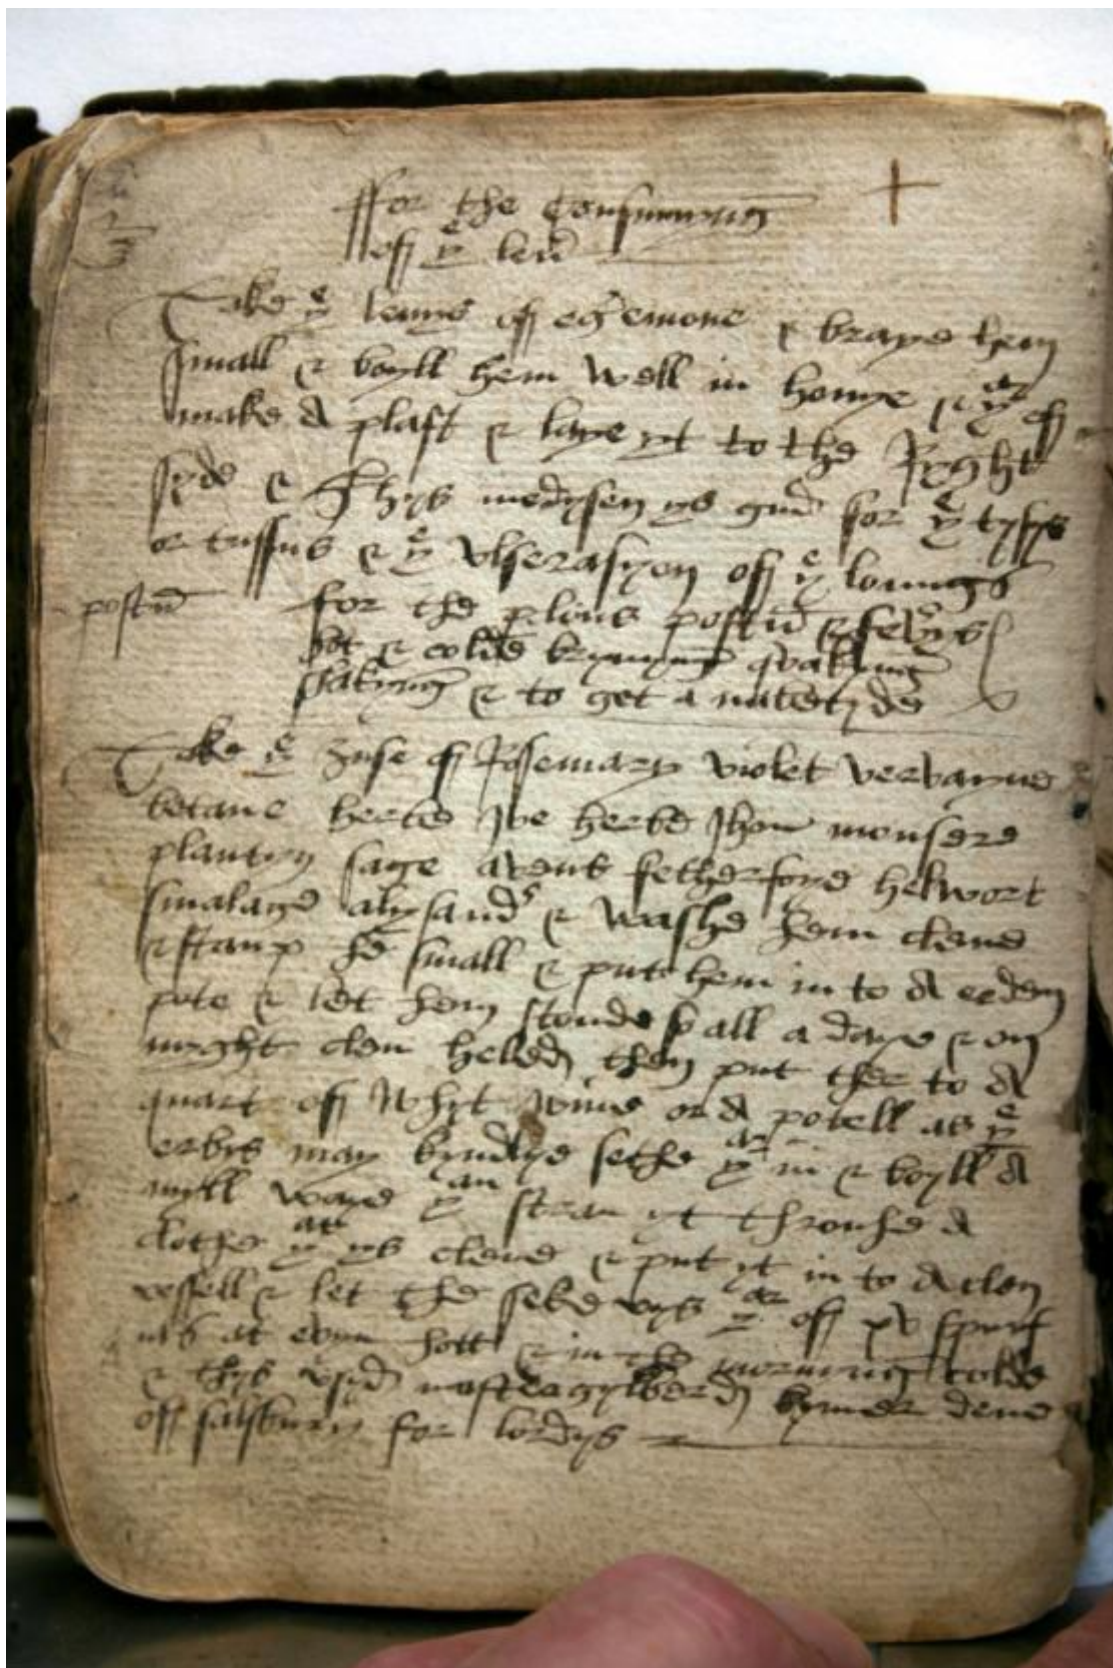 ffor the Consumyng
off ye levr
Take ye levys off egremone & braye them
small & boyll hem well in honye & yar off
make A plast & laye yt to the Ryght
syde & Thys medysen ys gud for ye tysys
or tussus & ye vlserasyon off ye loungs
postum
for the plous postum & fevers
hot & colde brynnyng quakyng
shakyng & to get a
Take ye Juse off Rosemary violet vervayne
betane herbe Ive herbe Jhon mousere
plantyn sage avens fetherfoye helwort
smalage alysandr & washe hem clene
& stamp hem small & put hem in to A erden
pote & let hem stonde so all a daye & on
nyght clen heled then put ther to A
quart off Whyt Wine or A potell as ye
erbys may kyndlye sethe yar in & boyll A
myll waye yan stran yt throuse A
clothe yat ys clene & put yt in to A clen
vessell & let the seke vys yar off xv spun
at evyn hott & in the mornyng colde
& thys vsyd master gylberd kymer dene
off salsbury for lordys